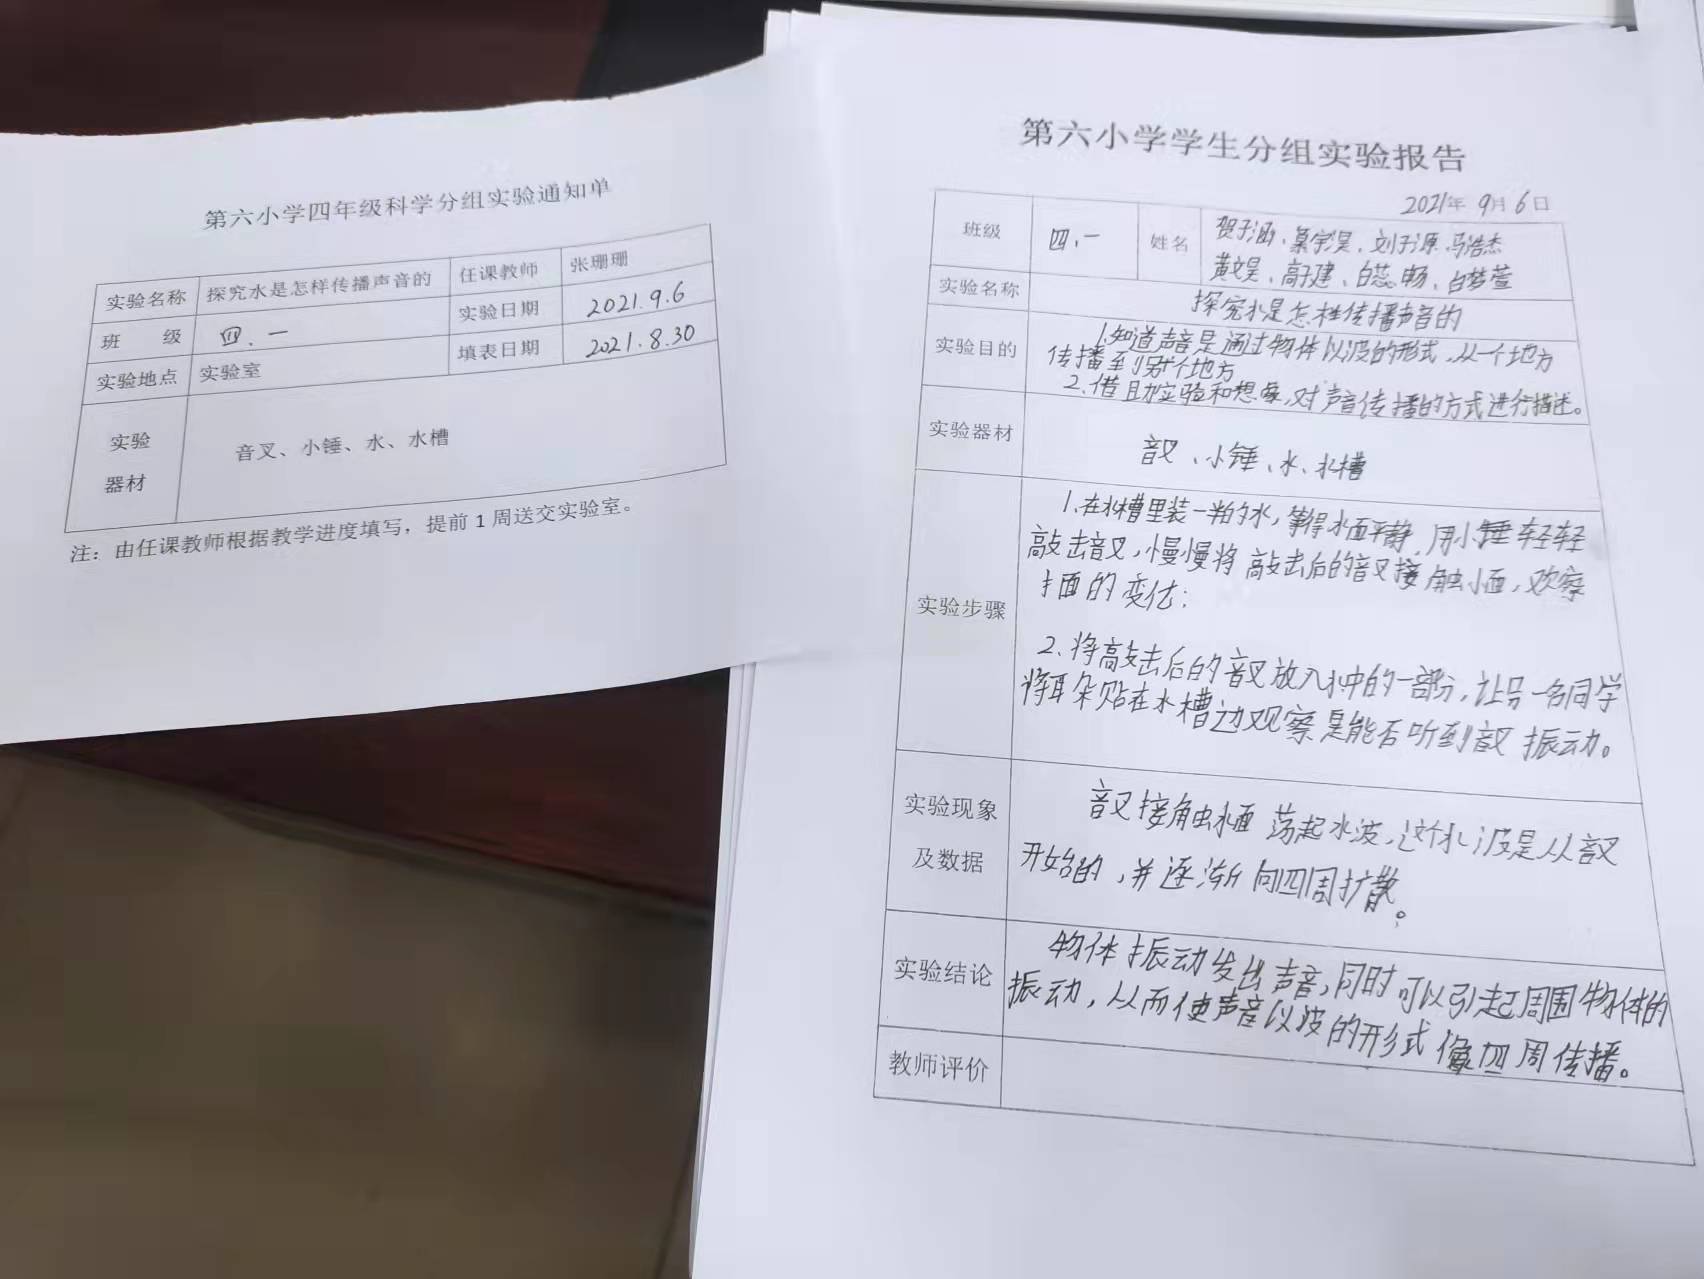 第六小学四年级科学分组实验通知单
实验名称 探究水是怎样传播声音的 任课教师 张珊珊
班 级 四、一 实验日期 2021.9.6
实验地点 实验室 填表日期 2021.8.30
实验
器材
音叉、小锤、水、水槽
注：由任课教师根据教学进度填写，提前1周送交实验室。
第六小学学生分组实验报告
2021年 9月6日
班级 四、一 姓名 贺子涵、宇昊、刘子源、马浩杰
黄文昊、高子建、白蕊畅、白梦萱
实验名称 探究水是怎样传播声音的
实验目的 1.知道声音是通过物体以波的形式,从一个地方
传播到另一个地方
2.借助实验和想象,对声音传播的方式进行描述。
实验器材 音叉、小锤、水、水槽
实验步骤
1.在水槽里装一半的水,等得水面平静,用小锤轻轻
敲击音叉,慢慢将敲击后的音叉接触水面,观察
面的变化;
2.将敲击后的音叉放入水中的一部分,让另一名同学
将耳朵贴在水槽边观察是能否听到音叉振动。
实验现象
及数据
音叉接触水面荡起水波,这个水波是从音叉
开始的,并逐渐向四周扩散。
实验结论 物体振动发出声音,同时可以引起周围物体的
振动,从而使声音以波的形式像四周传播。
教师评价